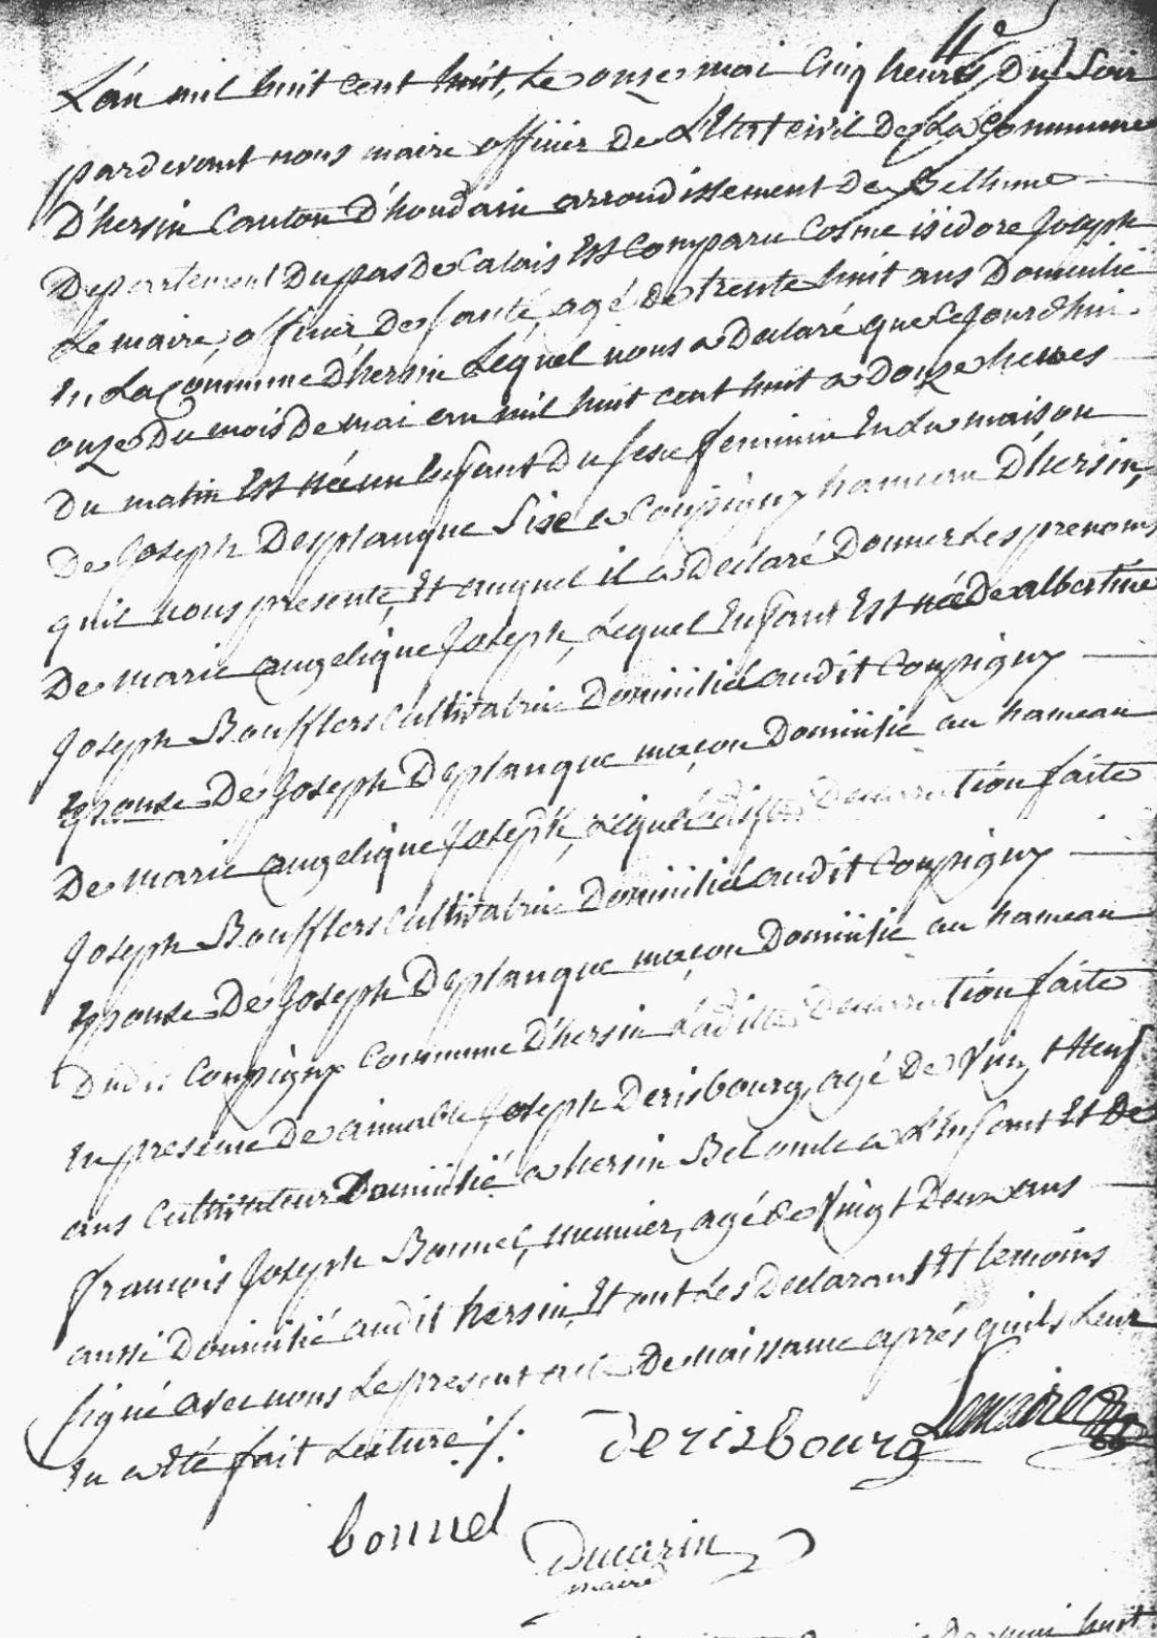 4e
L'an mil huit cent huit, Le onze mai Cinq heures Du Soir
pardevant nous maire officier De L'Etat civil De La Commune
D'hersin Canton D'houdain arrondissement De Bethune
Departement Du pas De Calais Est Comparu Cosme isidore Joseph
Lemaire, officier De santé, agé de trente huit ans Domicilié
En La Commune D'hersin Lequel nous a Declaré que Cejourd'hui
onze Du mois De mai an mil huit cent huit a Douze heures
Du matin Est née un Enfant Du sexe feminin En La maison
De Joseph Desplanque Sise a Coupigny hameau D'hersin,
qu'il nous presente, Et auquel il a Declaré Donner Les prenoms
De marie angelique Joseph, Lequel Enfant Est née De albertine
Joseph Boufflers Cultivatrice Domiciliée audit Coupigny
Epouse De Joseph Deplanque maçon Domicilié au hameau
De marie angelique Joseph, Lequel faite
Joseph Boufflers Cultivatrice Domiciliée audit Coupigny
Epouse De Joseph Deplanque maçon Domicilié au hameau
Dudit Coupigny Commune D'hersin Laditte Declaration faite
En presence De aimable Joseph Derisbourg, agé De Vingt Neuf
ans Cultivateur Domicilié a hersin Bel oncle a L'Enfant Et De
françois Joseph Bonnel, meunier, agé De Vingt Deux ans
aussi Domicilié audit hersin, Et ont Les Declarant Et temoins
signé avec nous Le present acte De naissance après qu'ils Leur
En a Eté fait Lecture ./.
Derisbourg Lemaire
bonnel
Ducarin
maire
mai huit